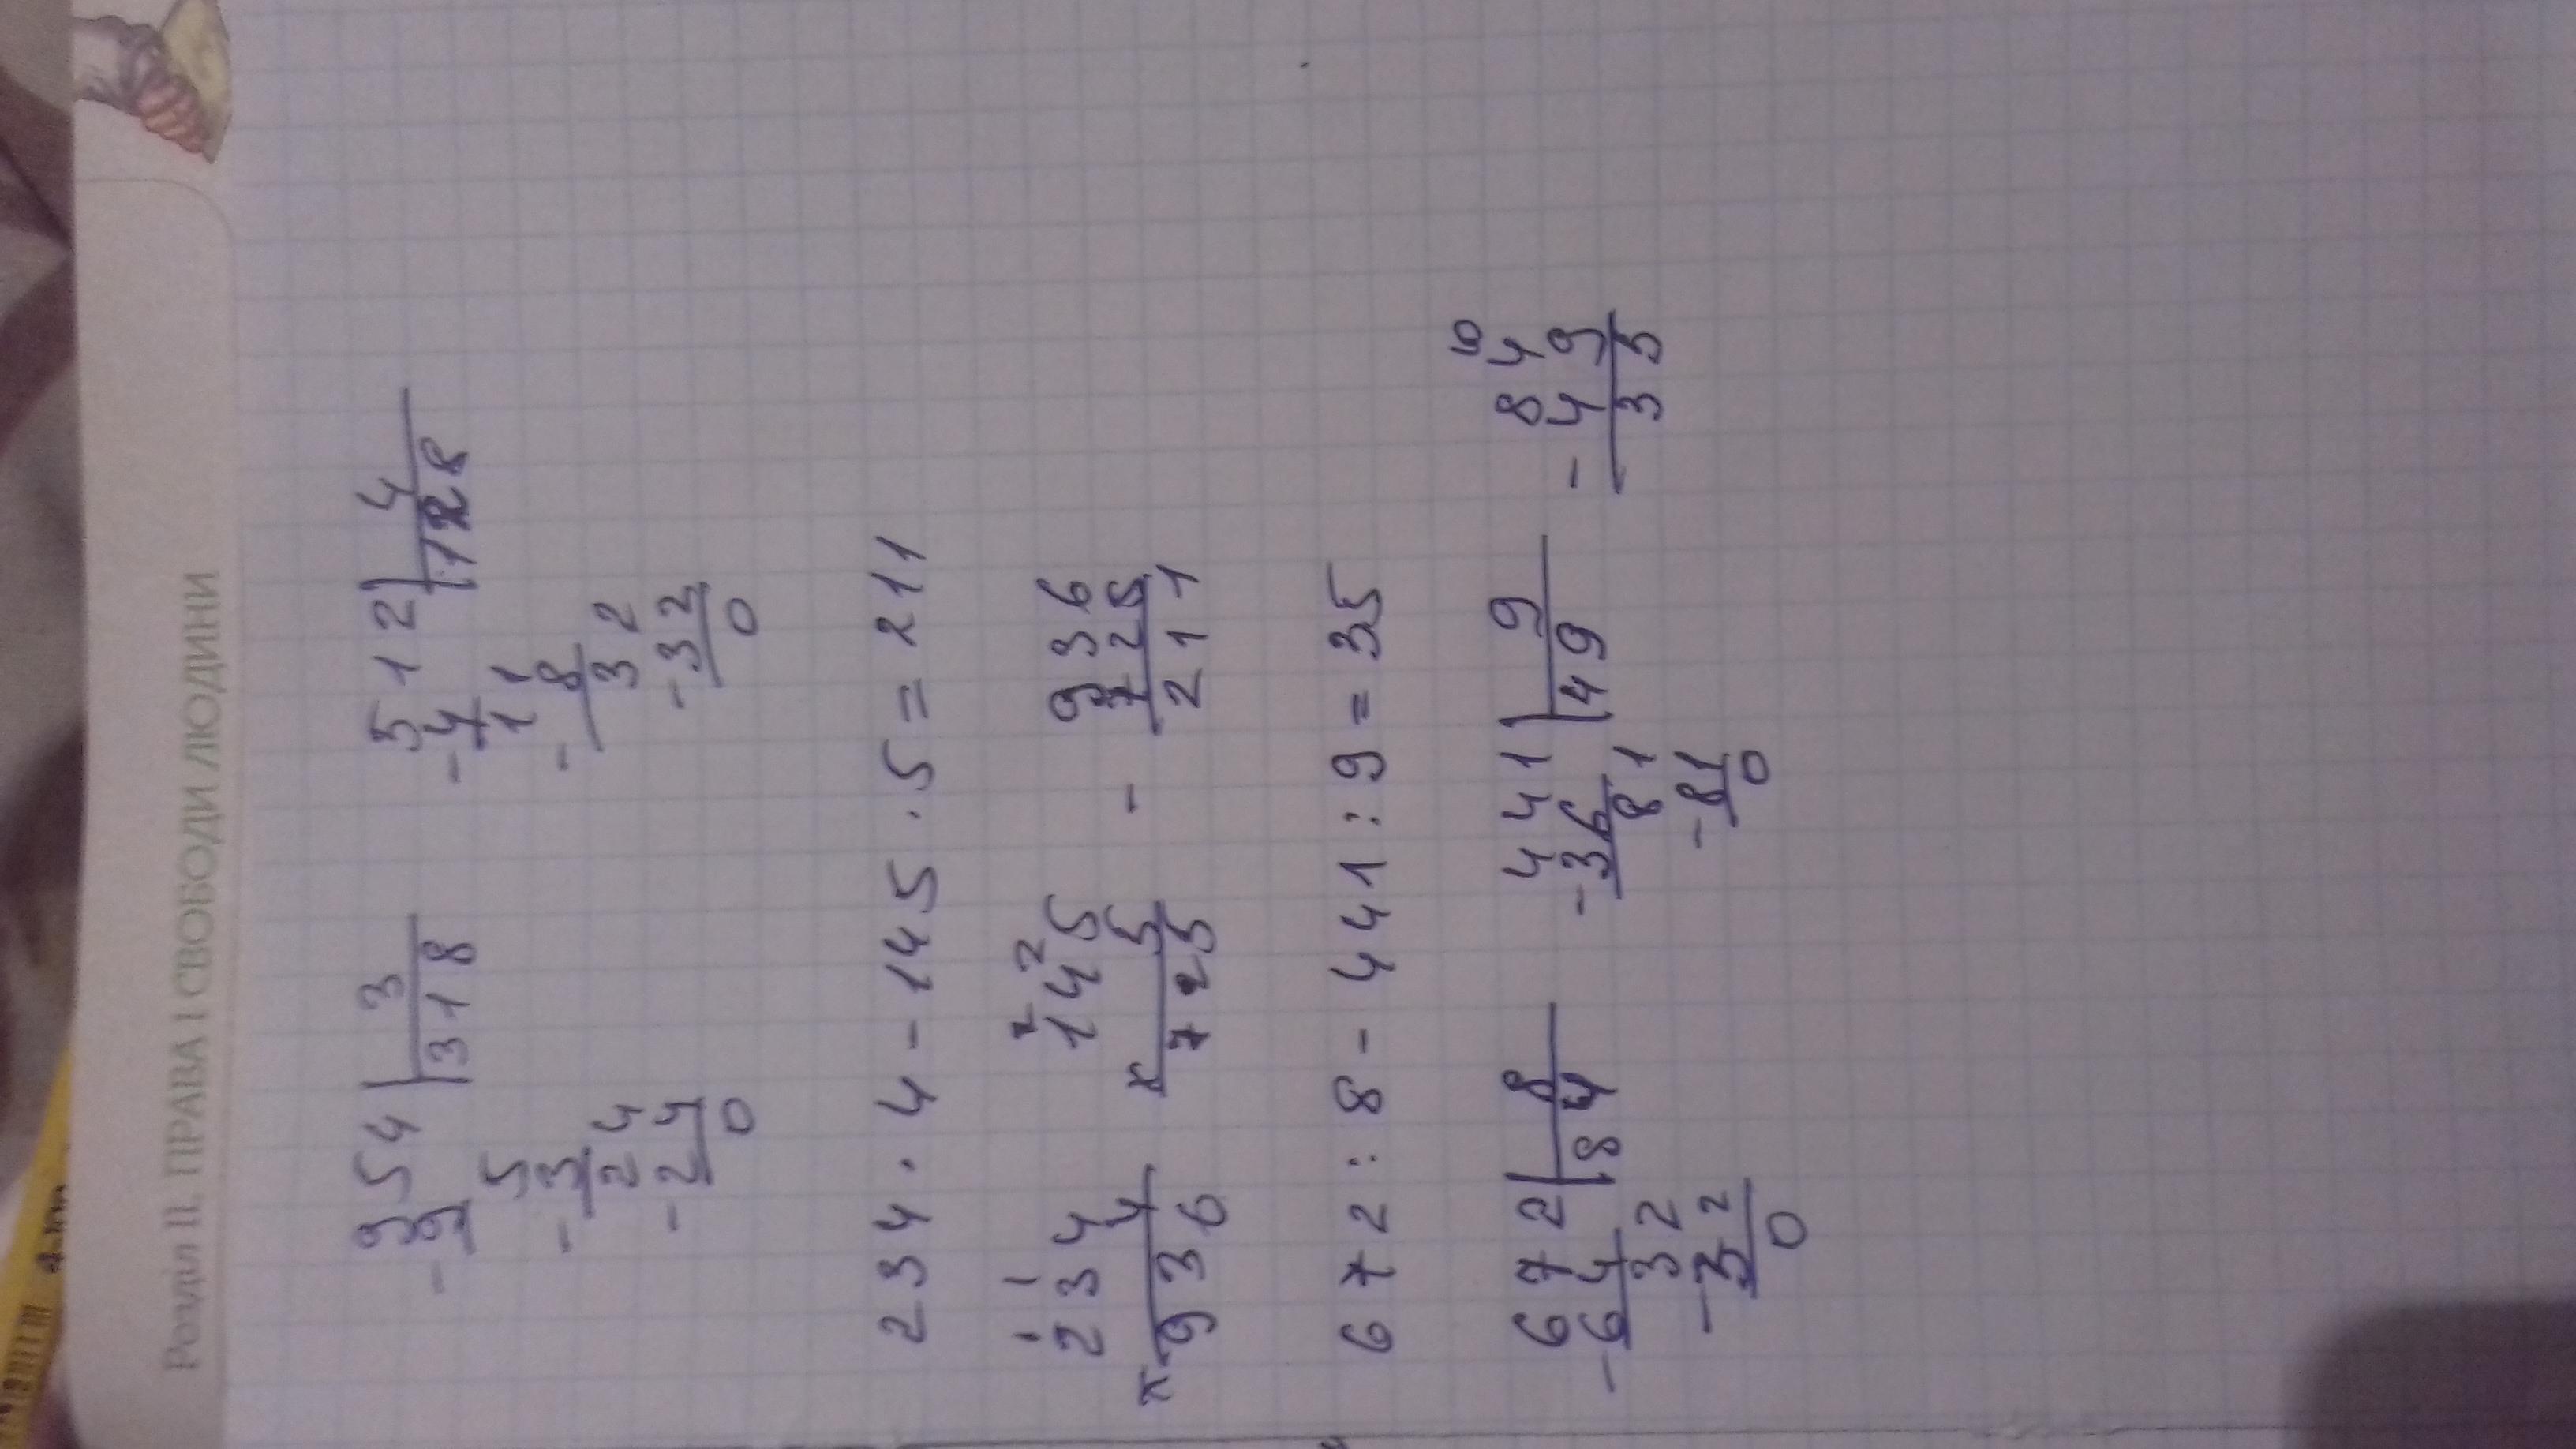 Розділ ІІ. ПРАВА І СВОБОДИ ЛЮДИНИ
954 | 3 512 | 4
-9 318 -4 128
5 11
-3 - 8
24 32
-24 -32
0 0
234 · 4 - 145 · 5 = 211
1 1 2 2
234 145 936
x 4 x 5 - 725
936 725 211
672 : 8 - 441 : 9 = 35
672 | 8 441 | 9 84
-64 84 -36 49 -49
32 81 35
-32 -81
0 0